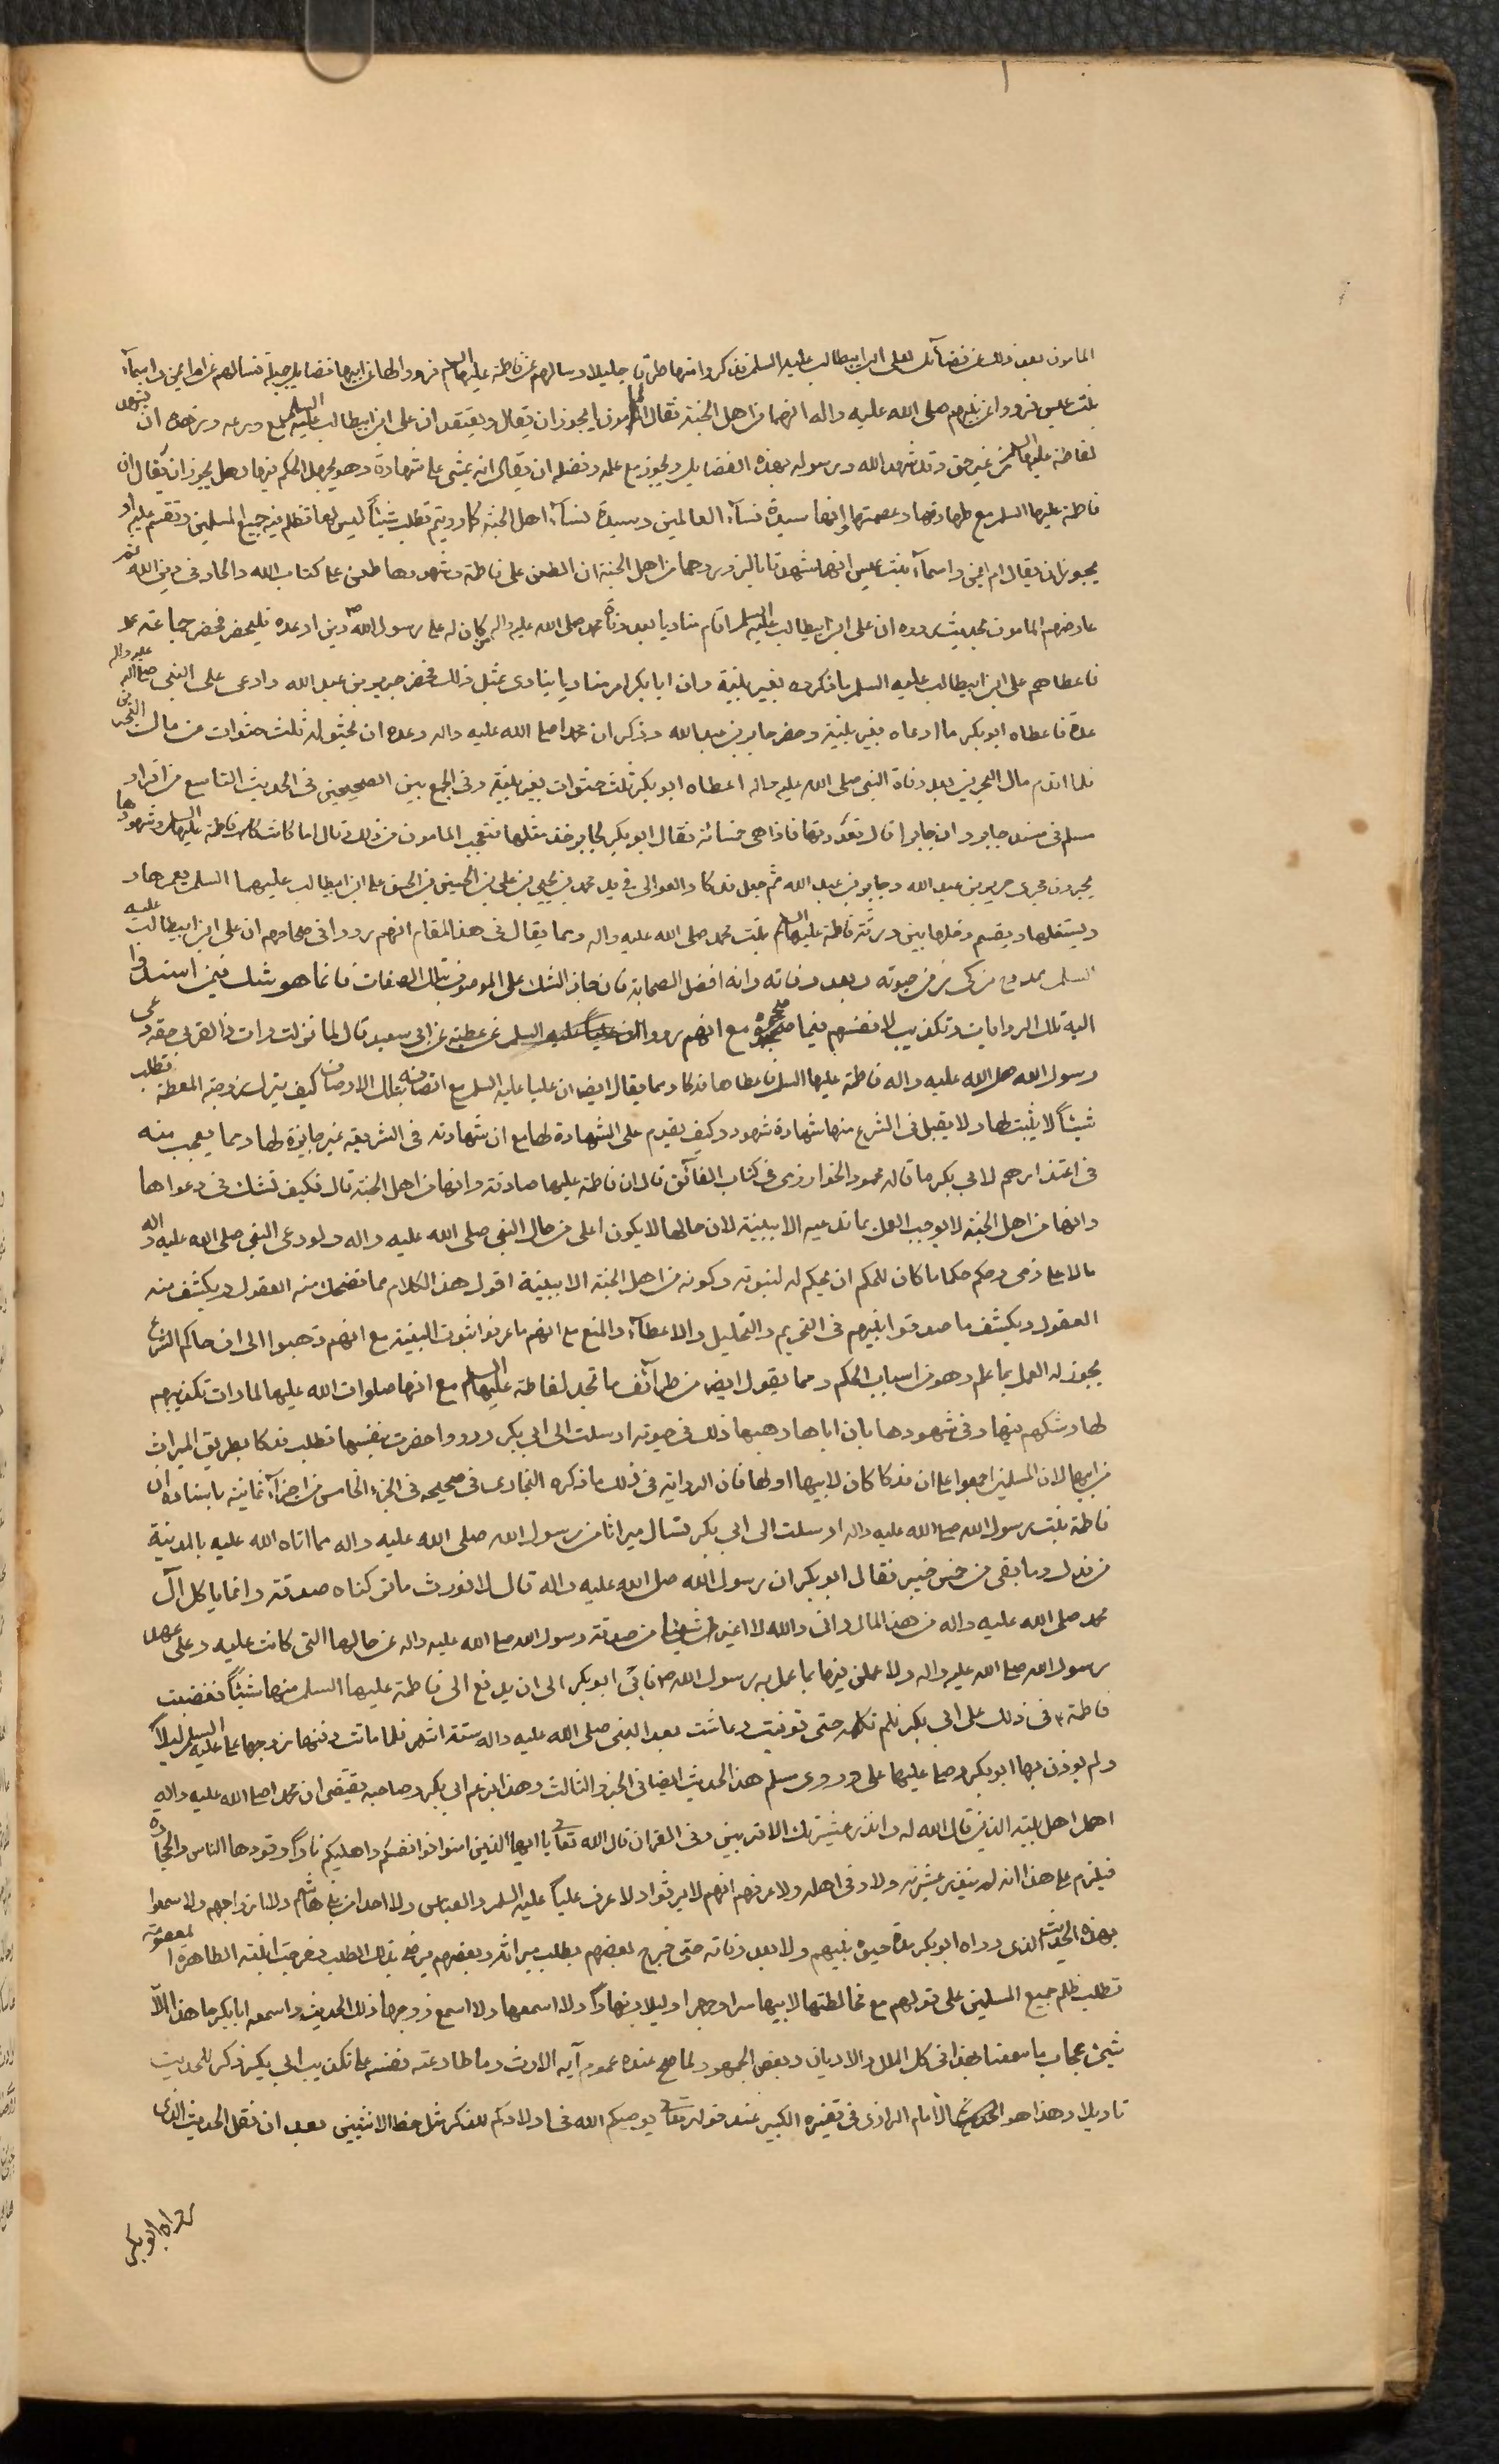 المامون بعد ذلك عن فضآئل لعلى ابن ابيطالب عليه السلم فذكروا منها طرقا جليلا وسالهم عن فاطمة عليها السلم فرووا لها عن ابيها فضايل جميلة فسالهم عن ام ايمن واسمآء
بنت عميس فرووا عن نبيهم صلى الله عليه واله انهما من اهل الجنة فقال المامون ايجوز ان يقال ويعتقد ان على ابن ابيطالب عليه السلم مع ورعه وزهده ان يشهد
لفاطمة عليها السلم من غير حق وقد شهد الله ورسوله بهذه الفضايل ويجوز مع علمه وفضله ان يقال انه يمشى على شهادة وهو يجهل الحكم فيها وهل يجوز ان يقال ان
فاطمة عليها السلم مع طهارتها وعصمتها وانها سيدة نسآء العالمين وسيدة نسآء اهل الجنة كما رويتم تطلب شيئاً ليس لها تظلم فيه جميع المسلمين وتقسم عليه او
يجوز ان يقال ام ايمن واسمآء بنت عميس انهما شهدتا بالزور وهما من اهل الجنة ان الطعن على فاطمة وشهودها طعن على كتاب الله والحاد فى دين الله ثم
عارضهم المامون بحديث رووه ان على ابن ابيطالب عليه السلم اقام مناديا بعد وفاة محمد صلى الله عليه واله من كان له على رسول الله ص دين او عدة فليحضر فحضر جماعة
فاعطاهم على ابن ابيطالب عليه السلم ما ذكروه بغير بينة وان ابا بكر امر مناديا ينادى بمثل ذلك فحضر جرير بن عبد الله وادعى على النبى صلى الله عليه واله
عدة فاعطاه ابو بكر ما ادعاه بغير بينة وحضر جابر بن عبد الله وذكر ان محمدا صلى الله عليه واله وعده ان يحثو له ثلث حثوات من مال البحرين
فلما اقدم مال البحرين بعد وفاة النبى صلى الله عليه واله اعطاه ابو بكر ثلث حثوات بغير بينة وفى الجمع بين الصحيحين فى الحديث التاسع من افراد
مسلم فى مسند جابر وان جابرا قال فعددتها فاذا هى خمسمائة فقال ابو بكر لجابر خذ مثلها فتعجب المامون من ذلك وقال اما كانت فاطمة عليها السلم وشهودها
يجرون مجرى جرير بن عبد الله وجابر بن عبد الله ثم جعل فدكا والعوالى فى يد محمد بن يحيى بن على بن الحسين بن على ابن ابيطالب عليهما السلم يعمرها و
يستغلها ويقسم دخلها بين ورثة فاطمة عليها السلم بنت محمد صلى الله عليه واله ومما يقال فى هذا المقام انهم رووا فى صحاحهم ان على ابن ابيطالب عليه
السلم ممدوح مزكى فى حيوته وبعد وفاته وانه افضل الصحابة فان جاز الشك على الموصوف بتلك الصفات فانما هو شك فيمن اسندوا
اليه تلك الروايات وتكذيب لانفسهم فيما صححوه مع انهم رووا عن عطية عن ابى سعيد قال لما نزلت وات ذا القربى حقه دعى
رسول الله صلى الله عليه واله فاطمة عليها السلم فاعطاها فدكا ومما يقال ايضا ان عليا عليه السلم مع اتصافه بتلك الاوصاف كيف يترك زوجته المعظمة تطلب
شيئاً لا يثبت لها ولا يقبل فى الشرع منها شهادة شهود وكيف يقدم على الشهادة لها مع ان شهادته فى الشريعة غير جايزة لها ومما يعجب منه
فى اعتذارهم لابى بكر ما قاله محمود الخوارزمى فى كتاب الفآئق قال ان فاطمة عليها صادقة وانها من اهل الجنة قال فكيف تشك فى دعواها
وانها من اهل الجنة لا يوجب العمل بما تدعيه الا ببينة لان حالها لا يكون اعلى من حال النبى صلى الله عليه واله ولو دعى النبى صلى الله عليه واله
مالا على ذمى وحكم حكما ما كان للحكم ان يحكم له لنبوته وكونه من اهل الجنة الا ببينة اقول هذا الكلام مما تضحك منه العقول ويكشف منه
العقول ويكشف ما صدقوا نبيهم فى التحريم والتحليل والاعطآء والمنع مع انهم ما عرفوا ثبوت البينة مع انهم ذهبوا الى ان حاكم الشرع
يجوز له العمل بما علم وهو من اسباب الحكم ومما يقول ايضا من طرآئف ما تجدد لفاطمة عليها السلم مع انها صلوات الله عليها لما رات تكذيبهم
لها وشكهم فيها وفى شهودها بان اباها وهبها ذلك فى حيوته ارسلت الى ابى بكر ورووا حضرت بنفسها تطلب فدكا بطريق الميراث
من ابيها لان المسلمين اجمعوا على ان فدكا كان لابيها اولها فان الرواية فى ذلك ما ذكره البخارى فى صحيحه فى الجزء الخامس من اجزآء ثمانية باسناده ان
فاطمة بنت رسول الله صلى الله عليه واله ارسلت الى ابى بكر تسال ميراثها من رسول الله صلى الله عليه واله مما اتاه الله عليه بالمدينة
من فدك وما بقى من خمس خيبر فقال ابو بكر ان رسول الله صلى الله عليه واله قال لا نورث ما تركناه صدقة وانما ياكل آل
محمد صلى الله عليه واله من هذا المال وانى والله لا اغير شيئا من صدقة رسول الله صلى الله عليه واله عن حالها التى كانت عليه وعلى عهد
رسول الله صلى الله عليه واله ولا عملن فيها بما عمل به رسول الله ص فابى ابو بكر الى ان يدفع الى فاطمة عليها السلم منها شيئاً فغضبت
فاطمة ع فى ذلك على ابى بكر فلم تكلمه حتى توفيت وعاشت بعد النبى صلى الله عليه واله ستة اشهر فلما ماتت دفنها زوجها على عليه السلم ليلاً
ولم يوذن بها ابو بكر وصلى عليها على وروى مسلم هذا الحديث ايضا فى الجزو الثالث وهذا زعم ابى بكر وصاحبه يقتضى ان محمدا صلى الله عليه واله
اهمل اهل بيته الذين قال الله له وانذر عشيرتك الاقربين وفى القران قال الله تعالى يا ايها الذين امنوا قوا انفسكم واهليكم ناراً وقودها الناس والحجارة
فيلزم على هذا انه لم ينذر عشيرته ولا وقى اهله ولا عرفهم انهم لا يرثوا ولا عرف علياً عليه السلم والعباس ولا احدا من بنى هاشم ولا ازواجهم ولا سمعوا
بهذه الحديث الذى رواه ابو بكر مدة حيوة نبيهم ولا بعد وفاته حتى خرج بعضهم يطلب ميراثه وبعضهم يرضى بذلك الطلب فخرجت ابنته الطاهرة المعصومة
تطلب ظلم جميع المسلمين على قولهم مع مخالطتها لابيها سرا وجهرا وليلا ونهاراً ولا اسمعها ولا اسمع زوجها ذلك الحديث واسمعه ابا بكر ما هذا الا
شئ عجاب ما سمعنا بهذا فى كل الملل والاديان وبعض الجمهور لما صح عنده عموم آية الارث وما طاوعته نفسه على تكذيب ابى بكر ذكر للحديث
تاويلا وهذا هو الامام الرازى فى تفسيره الكبير عند قوله تعالى يوصيكم الله فى اولادكم للذكر مثل حظ الانثيين بعد ان نقل الحديث الذى
رواه ابو بكر